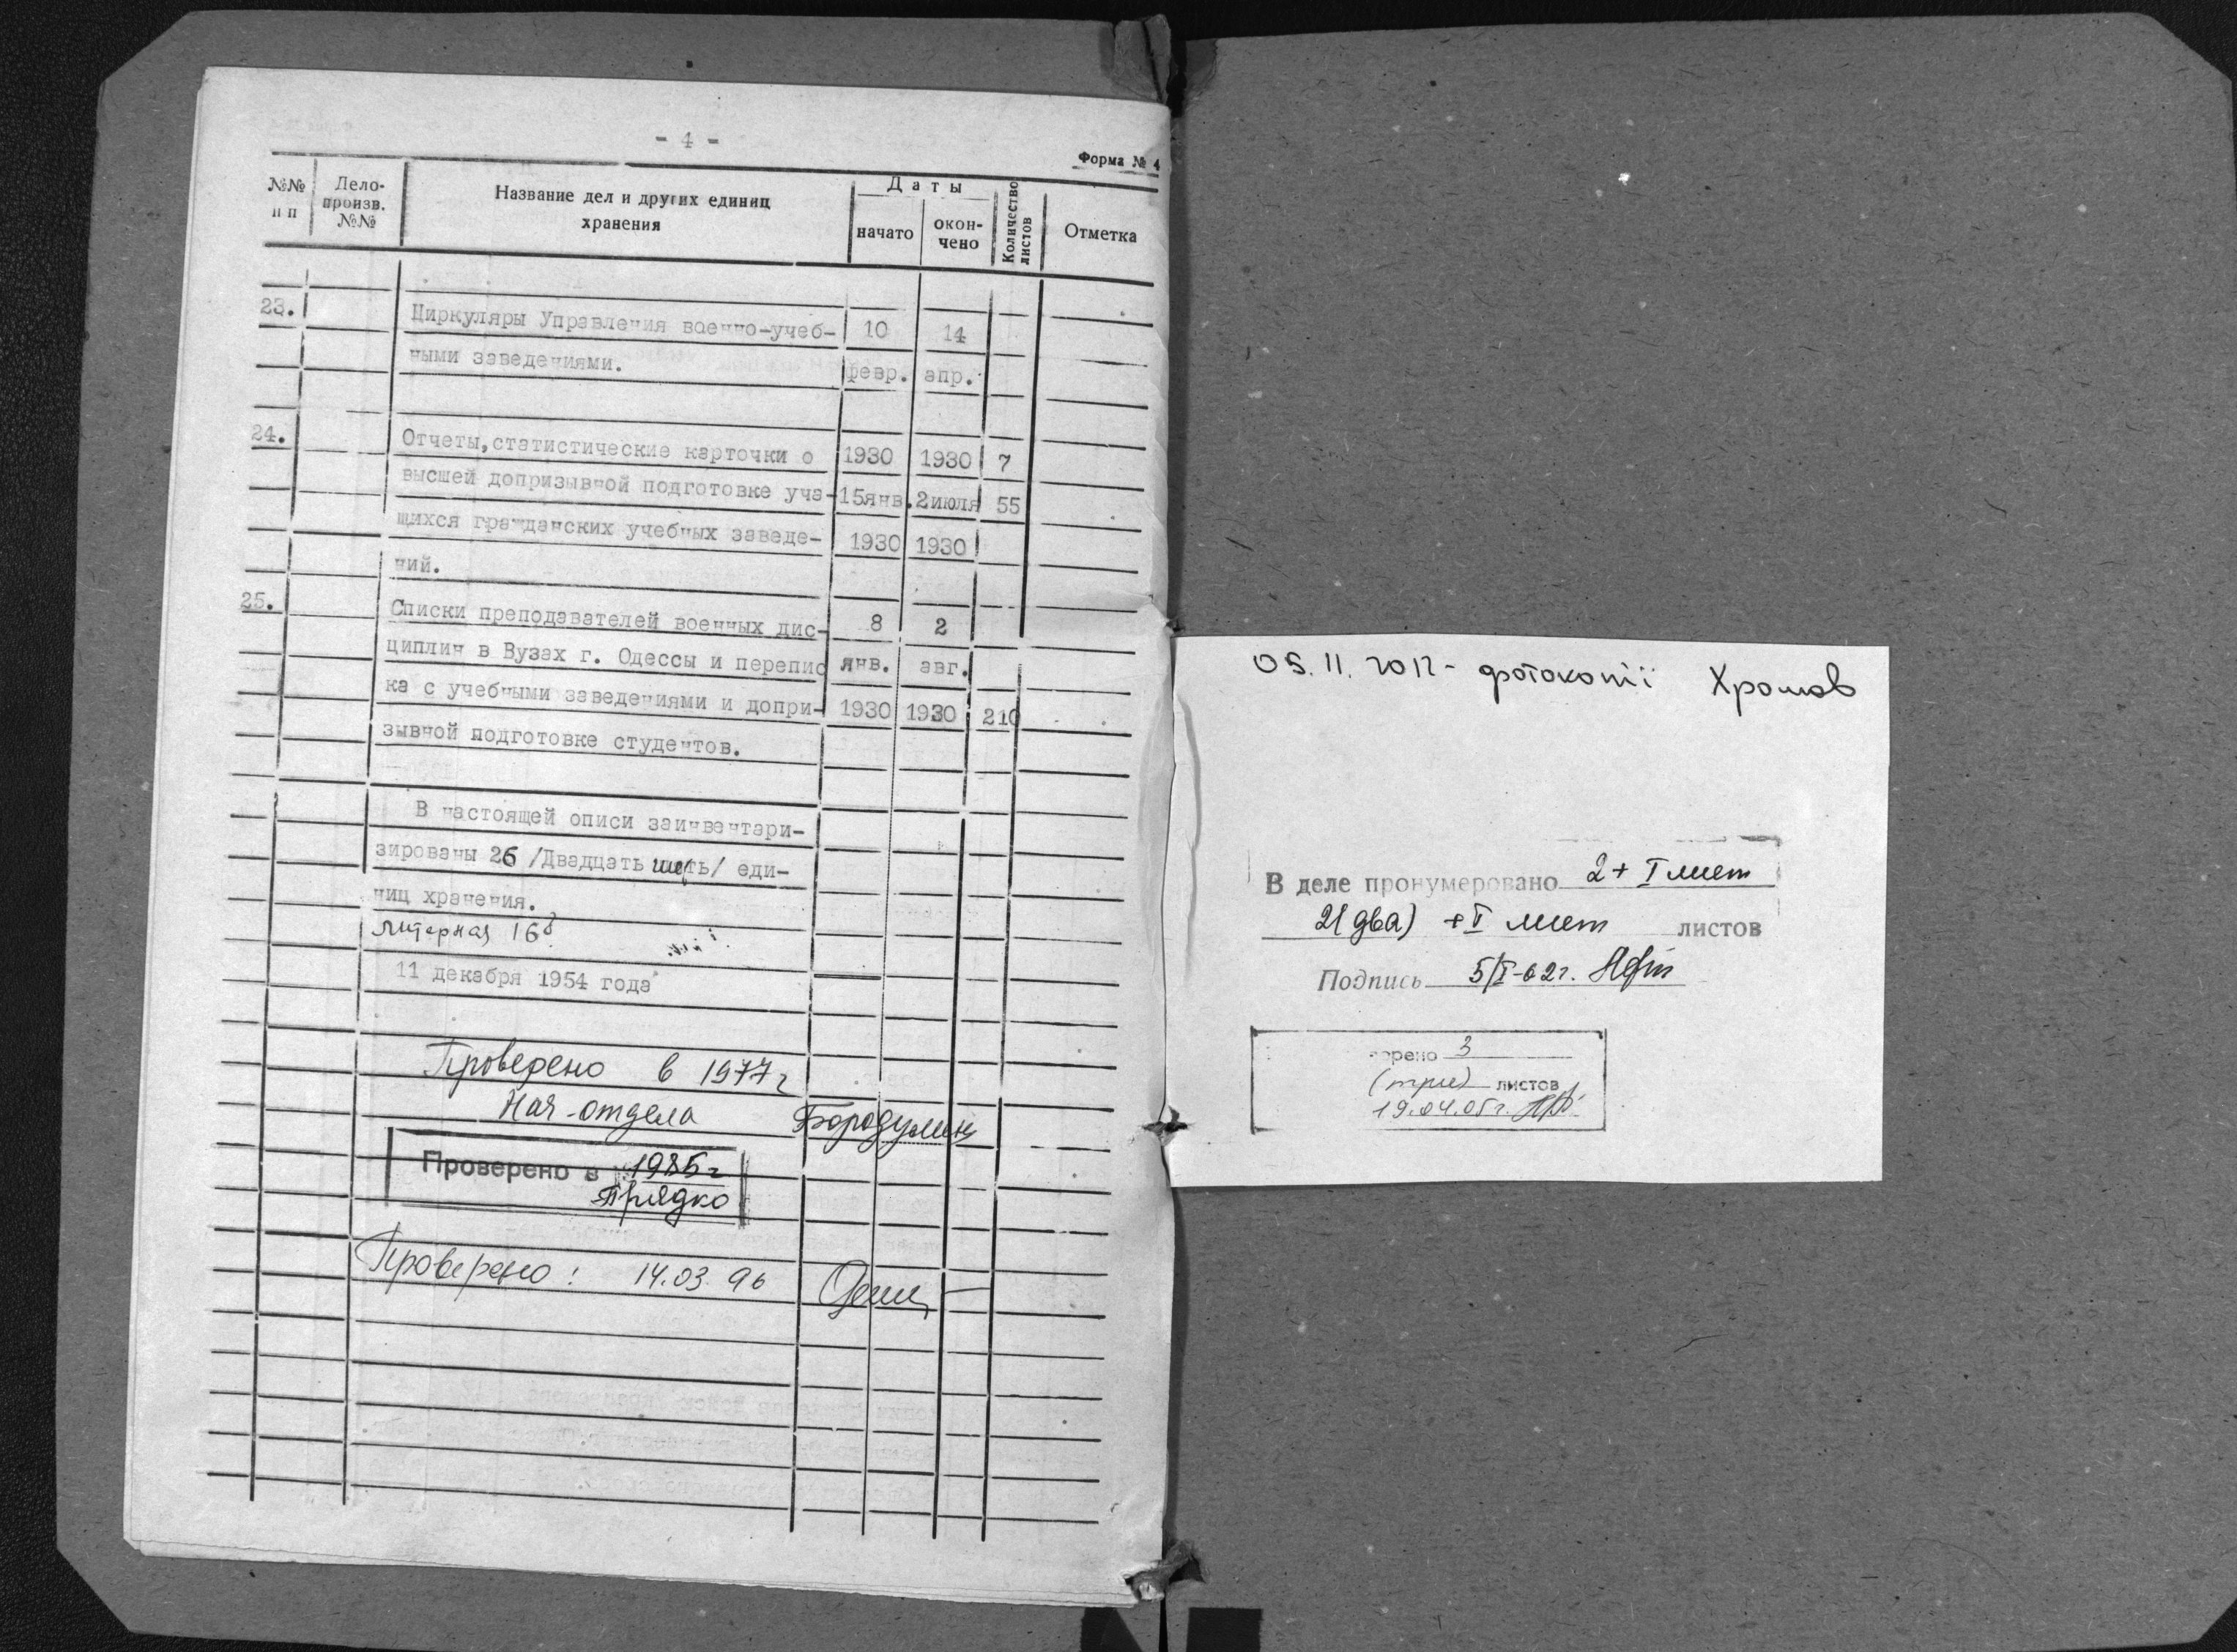 - 4 -
Форма № 4
№№ п п
Дело-произв. №№
Название дел и других единиц хранения
Даты
начато
окон-чено
Количество листов
Отметка
23. Циркуляры Управления военно-учеб- 10 14
ными заведениями. февр. апр.
24. Отчеты,статистические карточки о 1930 1930 7
высшей допризывной подготовке уча- 15янв. 2июля 55
щихся гражданских учебных заведе- 1930 1930
ний.
25. Списки преподавателей военных дис- 8 2
циплин в Вузах г. Одессы и перепис янв. авг.
ка с учебными заведениями и допри- 1930 1930 210
зывной подготовке студентов.
В настоящей описи заинвентари-
зированы 26 /Двадцать шесть/ еди-
ниц хранения.
литерная 16
11 декабря 1954 года
Проверено в 1977 г
Нач-отдела Бородулин
Проверено в 1985 г
Прядко
Проверено: 14.03.96
05.11.2012 - фотокопії Хромов
В деле пронумеровано 2 + I лист
2 (два) + I лист листов
Подпись 5/I-62г.
3
(три) листов
19.04.05г.